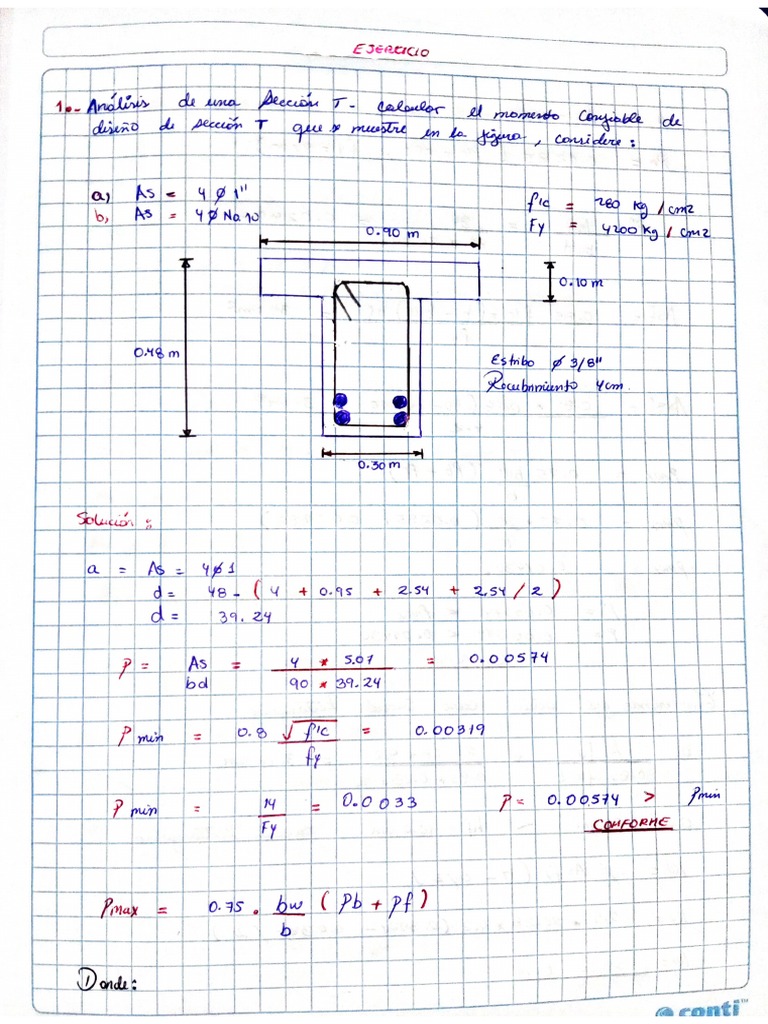 EJERCICIO
1.- Análisis de una sección T - calcular el momento confiable de
diseño de sección T que se muestre en la figura, considere:
a) As = 4 Ø 1"
b) As = 4 Ø No. 10
f'c = 280 Kg / cm2
Fy = 4200 Kg / cm2
0.90 m
0.10 m
0.48 m
Estribo Ø 3/8"
Recubrimiento 4cm.
0.30 m
Solución:
a = As = 4 Ø 1
d = 48 - ( 4 + 0.95 + 2.54 + 2.54 / 2 )
d = 39.24
P = As / bd = 4 * 5.07 / 90 * 39.24 = 0.00574
P min = 0.8 √f'c / fy = 0.00319
P min = 14 / Fy = 0.0033
P = 0.00574 > Pmin
CONFORME
Pmax = 0.75 . bw / b ( Pb + Pf )
Donde:
conti